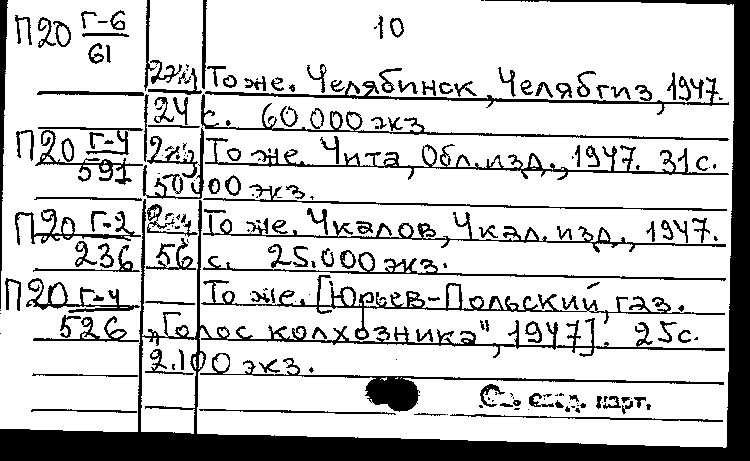 10
П20 Г-6/61 2экз То же. Челябинск, Челябгиз, 1947.
24 с. 60.000 экз
П20 Г-4/591 2экз То же. Чита, Обл.изд., 1947. 31с.
50000 экз.
П20 Г-2/236 2экз То же. Чкалов, Чкал. изд., 1947.
56 с. 25.000 экз.
П20 Г-4/526 То же. [Юрьев-Польский, газ.
„Голос колхозника", 1947]. 25с.
2.100 экз.
См. след. карт.